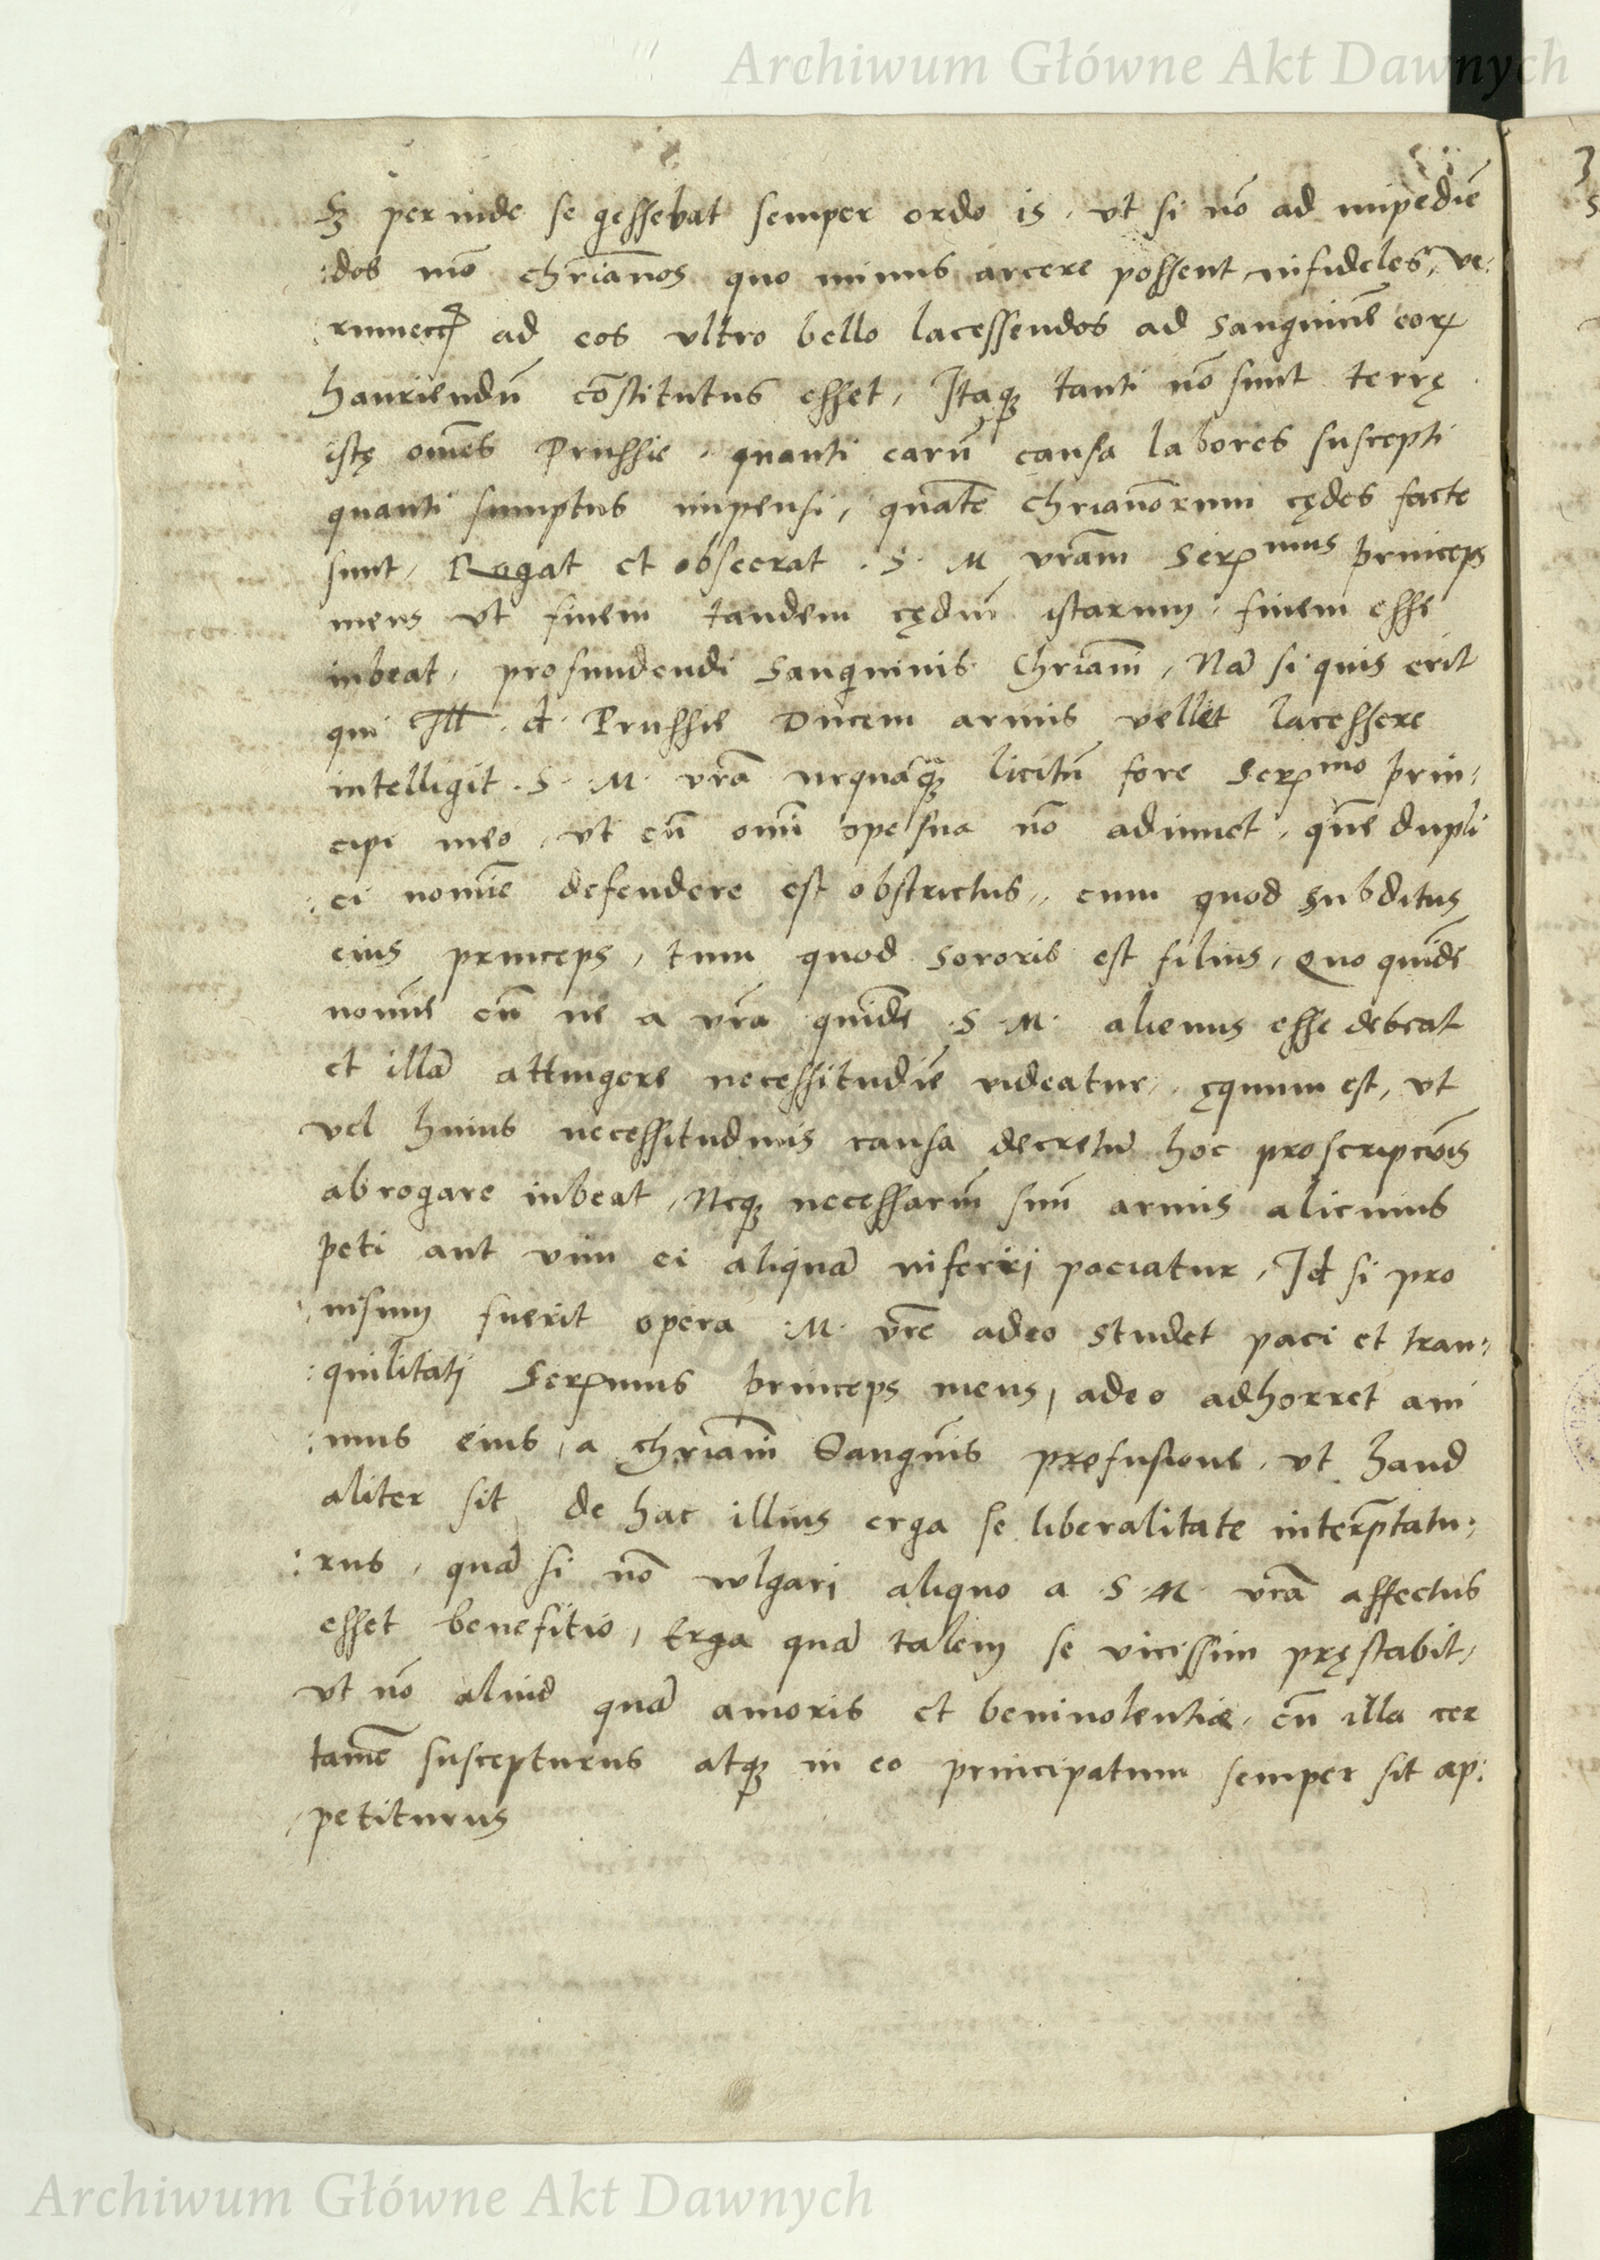 Archiwum Główne Akt Dawnych
Sꝫ perinde se gessebat semper ordo is, vt si nõ ad impediẽ
:dos mõ chrianos quo minus arcere possent infideles, ve:
ad eos vltro bello lacessendos ad sanguinẽ eorꝝ
hauriendũ cõstitutus esset, Itaqꝫ tanti nõ sunt terrę
istę om̃es Prussie, quanti earũ causa labores suscepti
quanti sumptus impensi, quãte chrianorum cędes facte
sunt, Rogat et obsecrat .S. M vram Serᵐᵘˢ princeps
meus vt finem tandem cędiũ istarum, finem esse
iubeat, profundendi sanguinis Chriani, Nã si quis erit
qui Ill. d. Prussie Ducem armis vellet lacessere
intelligit .S. M. vrã nequãqꝫ licitũ fore Serᵐᵒ prin:
cipi meo, vt eũ omi ope sua nõ adiuuet, quẽ dupli
:ci nomĩe defendere est obstrictus, cum quod subditus
eius princeps, tum quod sororis est filius, Quo quidẽ
nomĩe cũ ne a vrã quidẽ .S. M. alienus esse debeat
et illã attingere necessitudiẽ videatur, ęquum est, vt
vel huius necessitudinis causa decretũ hoc proscripcõis
abrogare iubeat, Neqꝫ necessariũ suũ armis alicuius
peti aut vim ei aliquã inferri paciatur, Id si pro
:uisum fuerit opera .M. vrẽ adeo studet paci et tran:
:quilitatj Serᵐᵘˢ princeps meus, adeo adhorret ani
:mus eius, a chriani sanguĩs profusione, vt haud
aliter sit de hac illius erga se liberalitate interptatu:
:rus, quã si nõ wlgari aliquo a .S. M. vrã affectus
esset benefitio, Erga quã talem se vicissim pręstabit,
vt nõ aliud quã amoris et beniuolentiæ, cũ illa cer
tamẽ suscepturus atqꝫ in eo principatum semper sit ap:
petiturus
Archiwum Główne Akt Dawnych